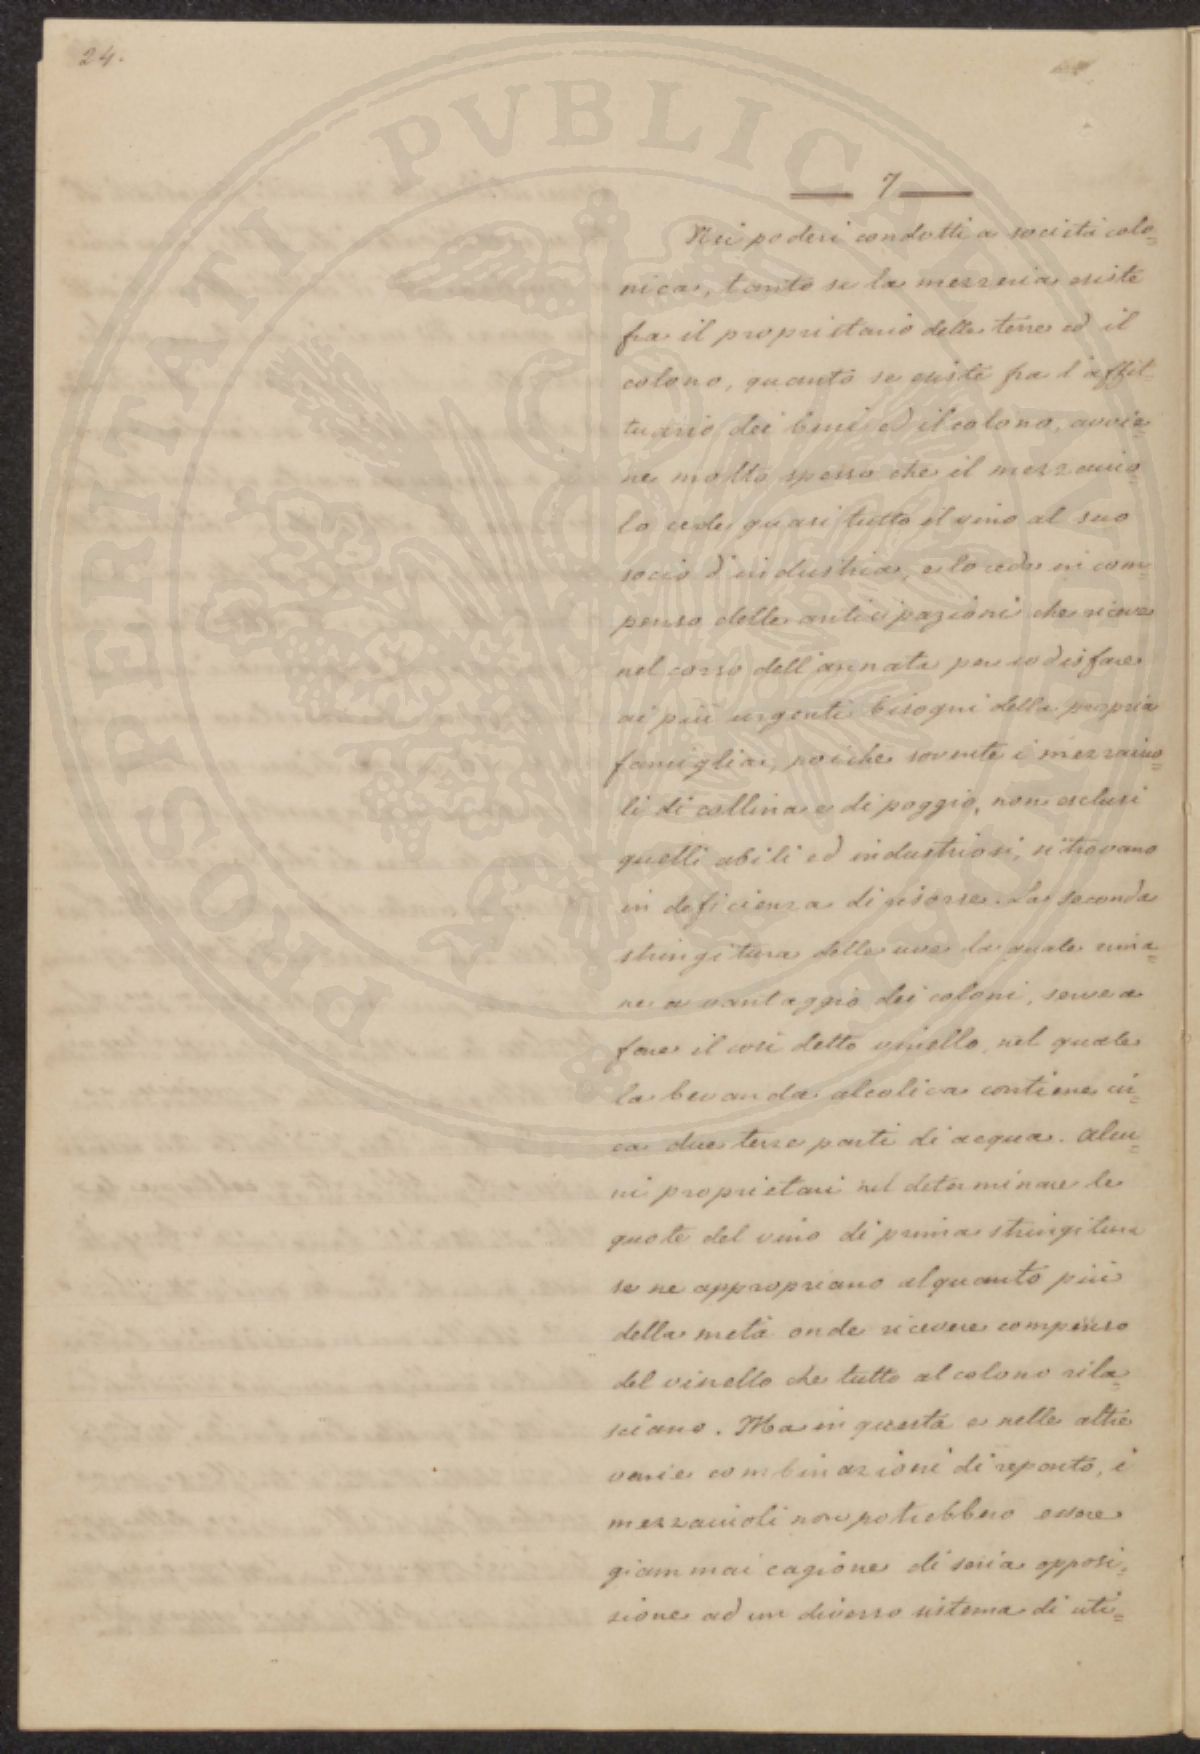 24.
PROSPERITATI PVBLICAE
7
Nei poderi condotti a società colo=
nica, tanto se la mezzeria esiste
fra il proprietario delle terre ed il
colono, quanto se esiste fra l'affit=
tuario dei beni ed il colono, avvie=
ne molto spesso che il mezzaiuo=
lo cede quasi tutto il vino al suo
socio d'industria, e lo cede in com=
penso delle anticipazioni che riceve
nel corso dell'annata per sodisfare
ai più urgenti bisogni della propria
famiglia, poiche sovente i mezzaiuo=
li di collina e di poggio, non esclusi
quelli abili ed industriosi, si trovano
in deficienza di risorse. La seconda
stringitura delle uve la quale rima=
ne a vantaggio dei coloni, serve a
fare il così detto vinello, nel quale
la bevanda alcolica contiene cir=
ca due terze parti di acqua. Alcu=
ni proprietari nel determinare le
quote del vino di prima stringitura
se ne appropriano alquanto più
della metà onde ricevere compenso
del vinello che tutto al colono rila=
sciano. Ma in questa e nelle altre
varie combinazioni di reparto, i
mezzaiuoli non potrebbero essere
giammai cagione di seria opposi=
zione ad un diverso sistema di uti=